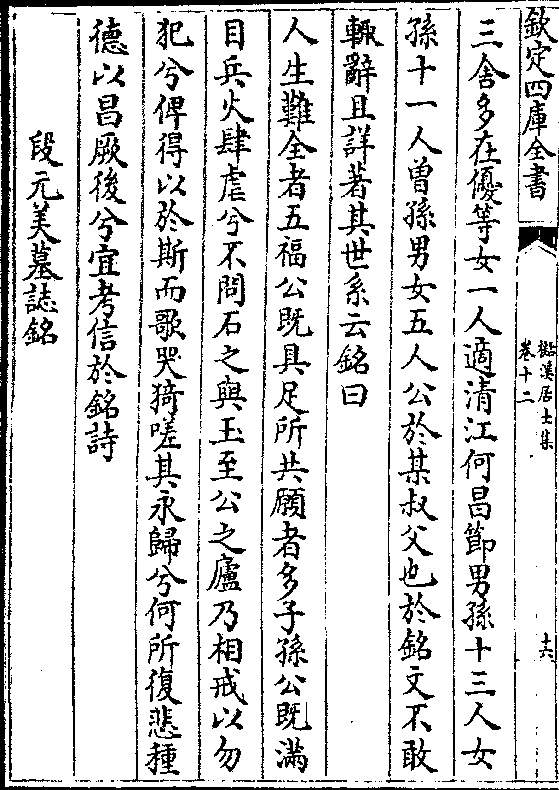 欽定四庫全書
檆溪居士集
卷十二
十六
三舍多在優等女一人適清江何昌節男孫十三人女
孫十一人曽孫男女五人公於某叔父也於銘文不敢
輙辭且詳著其世系云銘曰
人生難全者五福公既具足所共願者多子孫公既滿
目兵火肆虐兮不問石之與玉至公之廬乃相戒以勿
犯兮俾得以於斯而歌哭猗嗟其永歸兮何所復悲種
德以昌厥後兮宜考信於銘詩
段元美墓誌銘